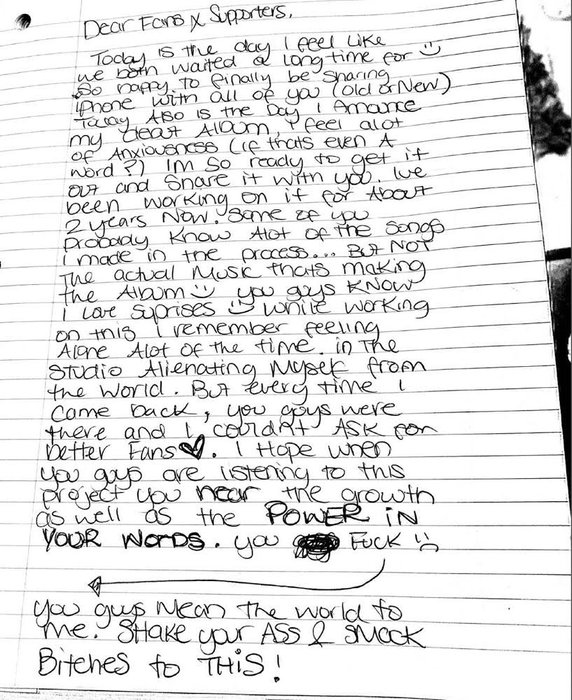 Dear Fans & Supporters,
Today is the day I feel like
we both waited a long time for
So happy to finally be sharing
iPhone with all of you (old or New)
Today Also is the Day I Annonce
my debut Album, I feel alot
of Anxiousness (if thats even A
word?) Im so ready to get it
out and share it with you. Ive
been working on it for About
2 years Now. Some of you
probady Know Alot of the songs
I made in the process... But NOT
The actual Music thats making
the Album you guys KNOW
I Love Suprises while working
on this I remember feeling
Alone Alot of the time. in The
Studio Alienating Myself from
the world. But every time I
Came back, you guys were
there and I couldnt ASK for
better Fans. I Hope when
you guys are listening to this
project you hear the growth
as well as the POWER iN
YOUR WORDS. you Fuck
you guys Mean the world to
me. SHake your ASS & smack
Bitches to THiS!